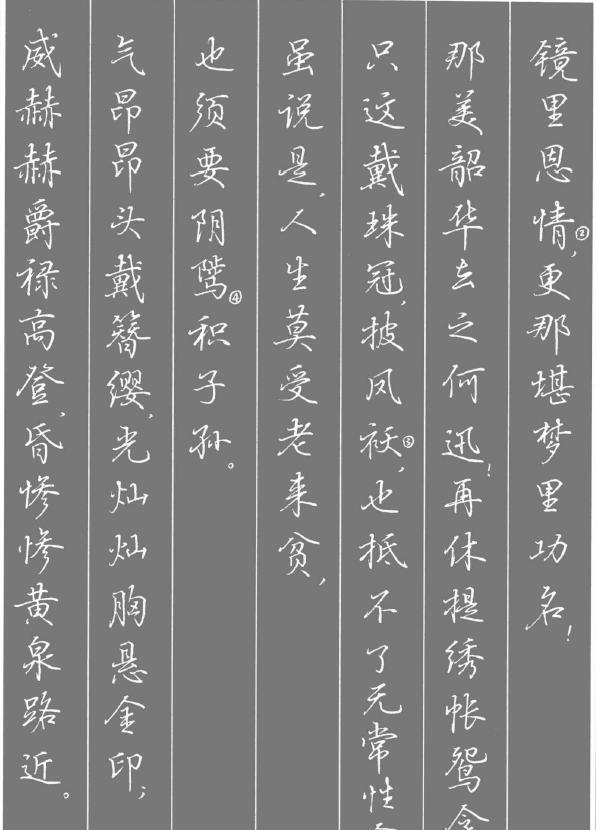 镜里恩情②,更那堪梦里功名!
那美韶华去之何迅!再休提绣帐鸳
只这戴珠冠,披凤袄③,也抵不了无常性
虽说是,人生莫受老来贫,
也须要阴骘④积子孙。
气昂昂头戴簪缨,光灿灿胸悬金印;
威赫赫爵禄高登,昏惨惨黄泉路近。